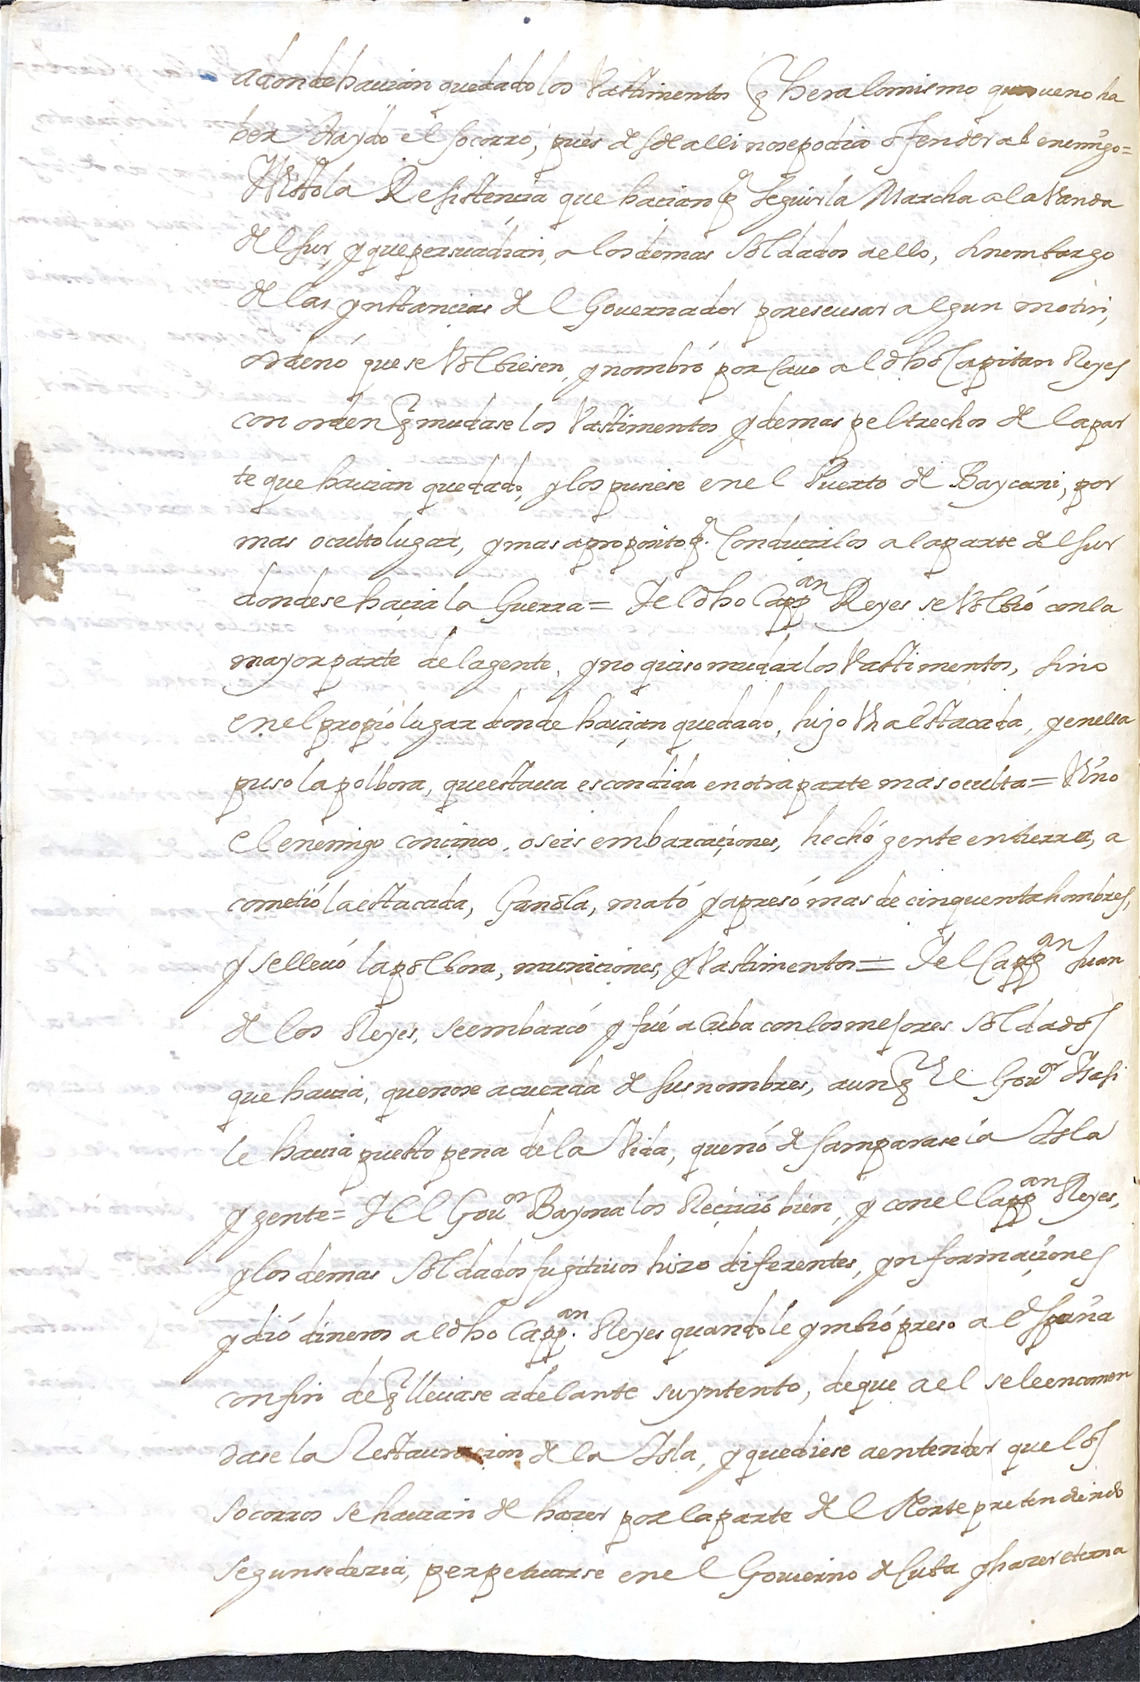 adonde havian quedado los Vastimentos q̃ hera lo mismo que no ha
ber traydo el socorro, pues desde alli no se podia offender al enemigo=
Vista la Resistencia que hacian p.ª seguir la Marcha a la Vanda
del sur, y que persuadian, a los demas soldados a ello, sin embargo
de las ynstancias del Governador por escusar algun motin,
ordenó que se Volbiesen, y nombró por Cavo al dho Capitan Reyes
con orden q̃ mudase los Vastimentos y demas peltrechos de la par
te que havian quedado, y los pusiese en el Puerto de Baycani, por
mas oculto lugar, y mas a proposito p.ª Conducirlos a la parte del sur
donde se hacia la Guerra= Y el dho Capp.an Reyes se Volbió con la
mayor parte de la gente, y no quiso mudar los Vastimentos, sino
en el propio lugar donde havian quedado, hijo Vna estacada, y en ella
puso la polbora, que estava escondida en otra parte mas oculta= Vino
el enemigo con cinco, o seis embarcaçiones, hechó gente en tierra, a
cometió la estacada, Ganola, mató y apresó mas de cinquenta hombres,
y se llevó la polbora, municiones, y Vastimentos= Y el Capp.an Juan
de los Reyes, se embarcó y fué a Cuba con los mejores soldados
que havia, que no se acuerda de sus nombres, aunq̃ el Gov.or Isasi
le havia puesto pena de la Vida, que nó desamparase la Isla
y gente= Y el Gov.or Bayona los Recivió bien, y con el Capp.an Reyes,
y los demas soldados fugitivos hizo diferentes, ynformaçiones
y dió dineros al dho Capp.an Reyes quando le ymbió preso a España
con fin de q̃ llevase adelante su yntento, de que a el se le encomen
dase la Restauracion de la Isla, y que diese a entender que los
socorros se havian de hazer por la parte del Norte pretendiendo
segun se decia, perpetuarse en el Govierno de Cuba y hazer eterna